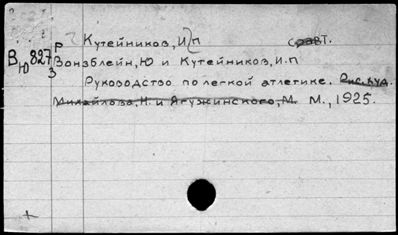 Р Кутейников, И.П
В 827 Вонзблейн, Ю и Кутейников, И.П
Ю 3
Руководство по легкой атлетике. Рис. худ.
Михайлова, Н. и Ягужинского, М. М., 1925.